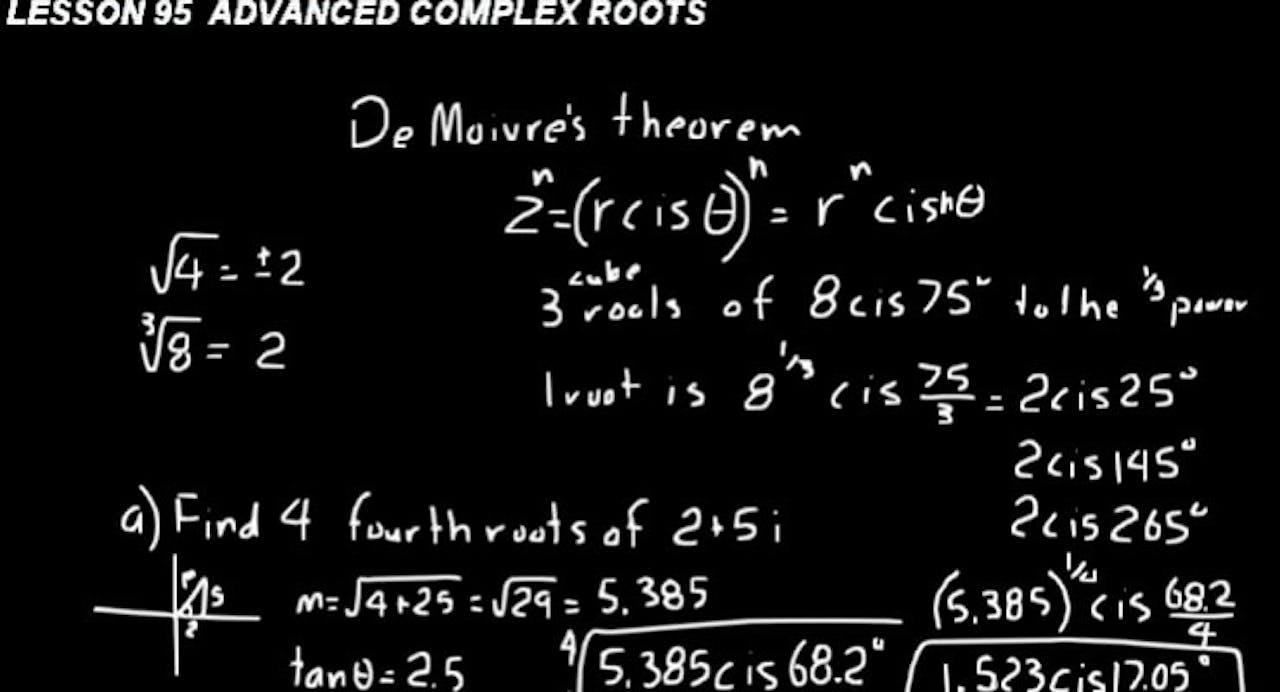 LESSON 95 ADVANCED COMPLEX ROOTS
De Moivre's theorem
zⁿ=(rcisθ)ⁿ = rⁿ cis nθ
√4 = ±2
3 cube roots of 8cis75° to the 1/3 power
∛8 = 2
1 root is 8^1/3 cis 75/3 = 2cis25°
2cis145°
2cis265°
a) Find 4 fourth roots of 2+5i
r 5
2
m=√4+25 = √29 = 5.385
(5.385)^1/4 cis 68.2/4
tanθ= 2.5
⁴√5.385cis68.2°
1.523cis17.05°